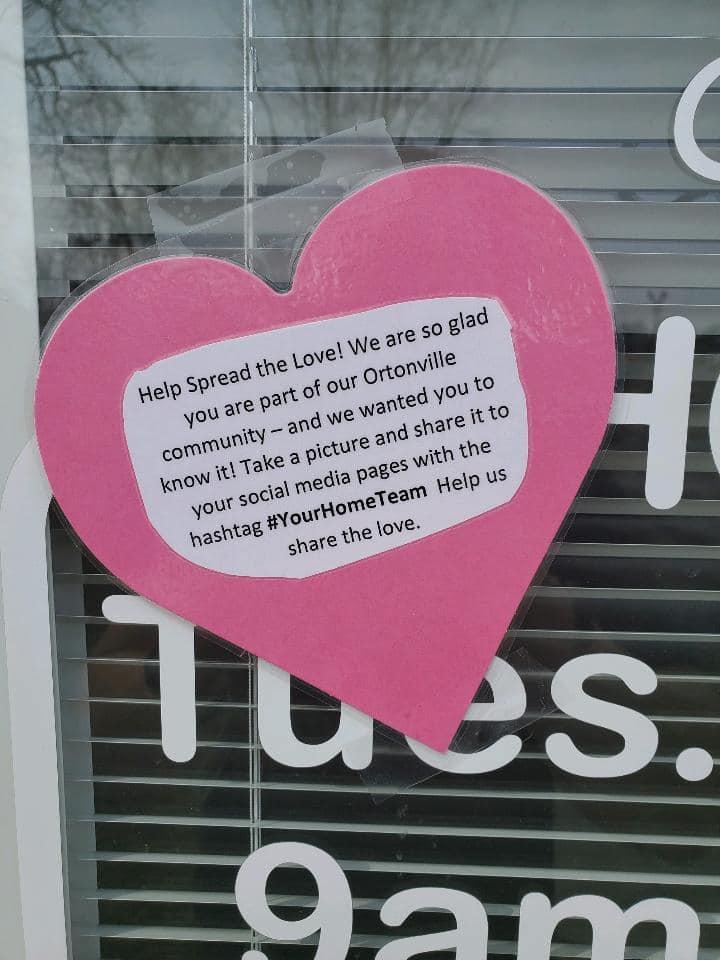 Help Spread the Love! We are so glad
you are part of our Ortonville
community – and we wanted you to
know it! Take a picture and share it to
your social media pages with the
hashtag #YourHomeTeam Help us
share the love.
Tues.
9am